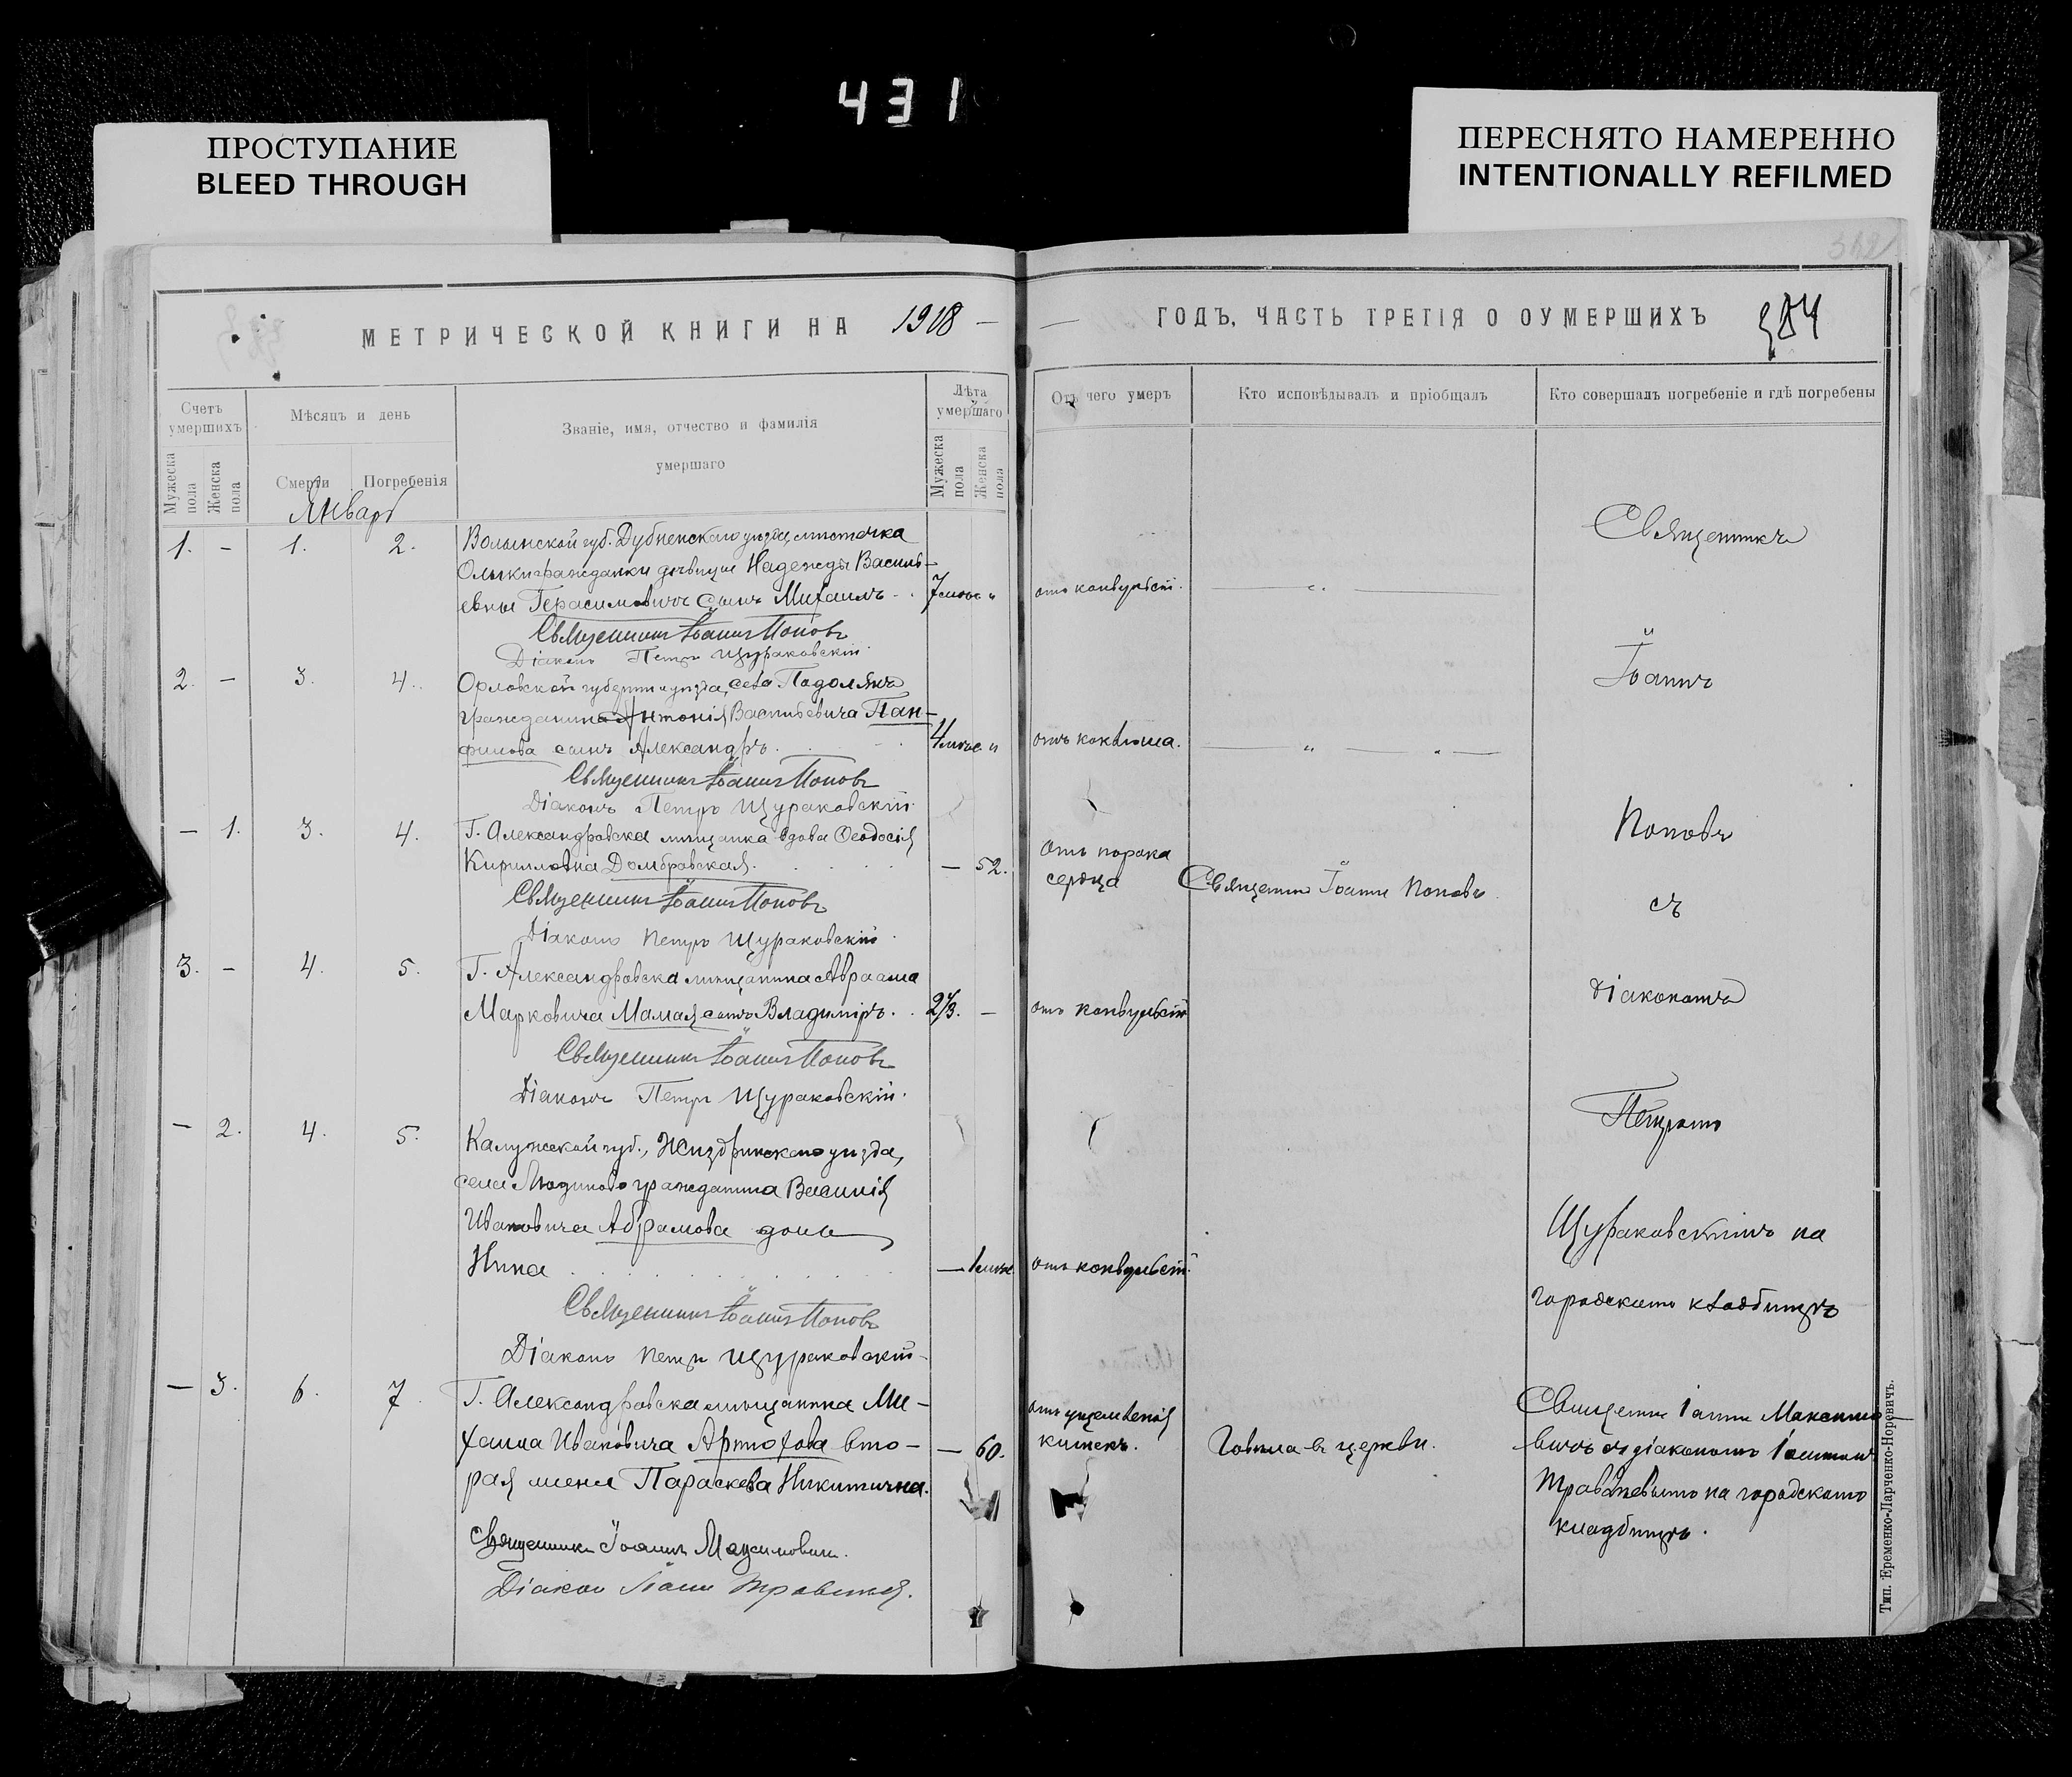 431
ПРОСТУПАНИЕ
BLEED THROUGH
ПЕРЕСНЯТО НАМЕРЕННО
INTENTIONALLY REFILMED
МЕТРИЧЕСКОЙ КНИГИ НА 1918
Счетъ умершихъ
Мужеска пола
Женска пола
Мѣсяцъ и день
Смерти
Погребенія
Званіе, имя, отчество и фамилія
умершаго
Лѣта умершаго
Мужеска пола
Женска пола
Январь
1. - 1. 2. Волынской губ. Дубненскаго уѣзда мѣстечка
Олыки гражданки дѣвицы Надежды Василь-
евны Герасимовичъ сынъ Михаилъ 7 мѣс "
Священникъ Іоаннъ Поповъ
Діаконъ Петръ Щураковскій.
2. - 3. 4. Орловской губерніи и уѣзда, села Подолянъ
гражданина Антонія Васильевича Пан-
филова сынъ Александръ. 4 мѣс. "
Священникъ Іоаннъ Поповъ
Діаконъ Петръ Щураковскій.
- 1. 3. 4. Г. Александровска мѣщанка вдова Ѳеодосія
Кирилловна Домбровская. - 52.
Священникъ Іоаннъ Поповъ
Діаконъ Петръ Щураковскій.
3. - 4. 5. Г. Александровска мѣщанина Авраама
Марковича Мамая сынъ Владиміръ. -
Священникъ Іоаннъ Поповъ
Діаконъ Петръ Щураковскій.
- 2. 4. 5. Калужской губ., Жиздринскаго уѣзда,
села Людиново гражданина Василія
Ивановича Абрамова дочь
Нина - 1 мѣс.
Священникъ Іоаннъ Поповъ
Діаконъ Петръ Щураковскій
- 3. 6. 7. Г. Александровска мѣщанина Ми-
хаила Ивановича Артюхова вто- - 60.
рая жена Параскева Никитична.
Священникъ Іоаннъ Максимовичъ.
Діаконъ Іоаннъ
ГОДЪ, ЧАСТЬ ТРЕТІЯ О ОУМЕРШИХЪ
Отъ чего умеръ
Кто исповѣдывалъ и пріобщалъ
Кто совершалъ погребеніе и гдѣ погребены
отъ конвульсій.
отъ коклюша.
отъ порока
сердца
Священникъ Іоаннъ Поповъ
отъ конвульсій
отъ конвульсій.
отъ ущемленія
кишекъ.
Говѣла въ церкви.
Священникъ
Іоаннъ
Поповъ
съ
діакономъ
Петромъ
Щураковскимъ на
городскомъ кладбищѣ
Священникъ Іоаннъ Максимо-
вичъ съ діакономъ Іоанномъ
на городскомъ
кладбищѣ.
Тип. Еременко-Ларченко-Норевичъ.